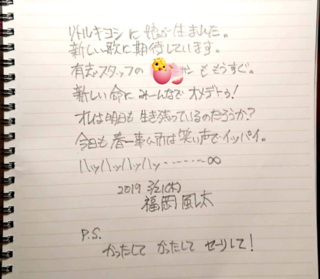 リトルキヨシに娘が生まれた。
新しい歌に期待しています。
有志スタッフの ももうすぐ。
新しい命にみーんなでオメデトゥ!
オレは明日も生き張っているのだろうか?
今日も春一事ム所は笑い声でイッパイ。
ハッハッハッハッ・・・・・・～∞
2019 3/21(木)
福岡風太
P.S.
かったして かったして せーりして!